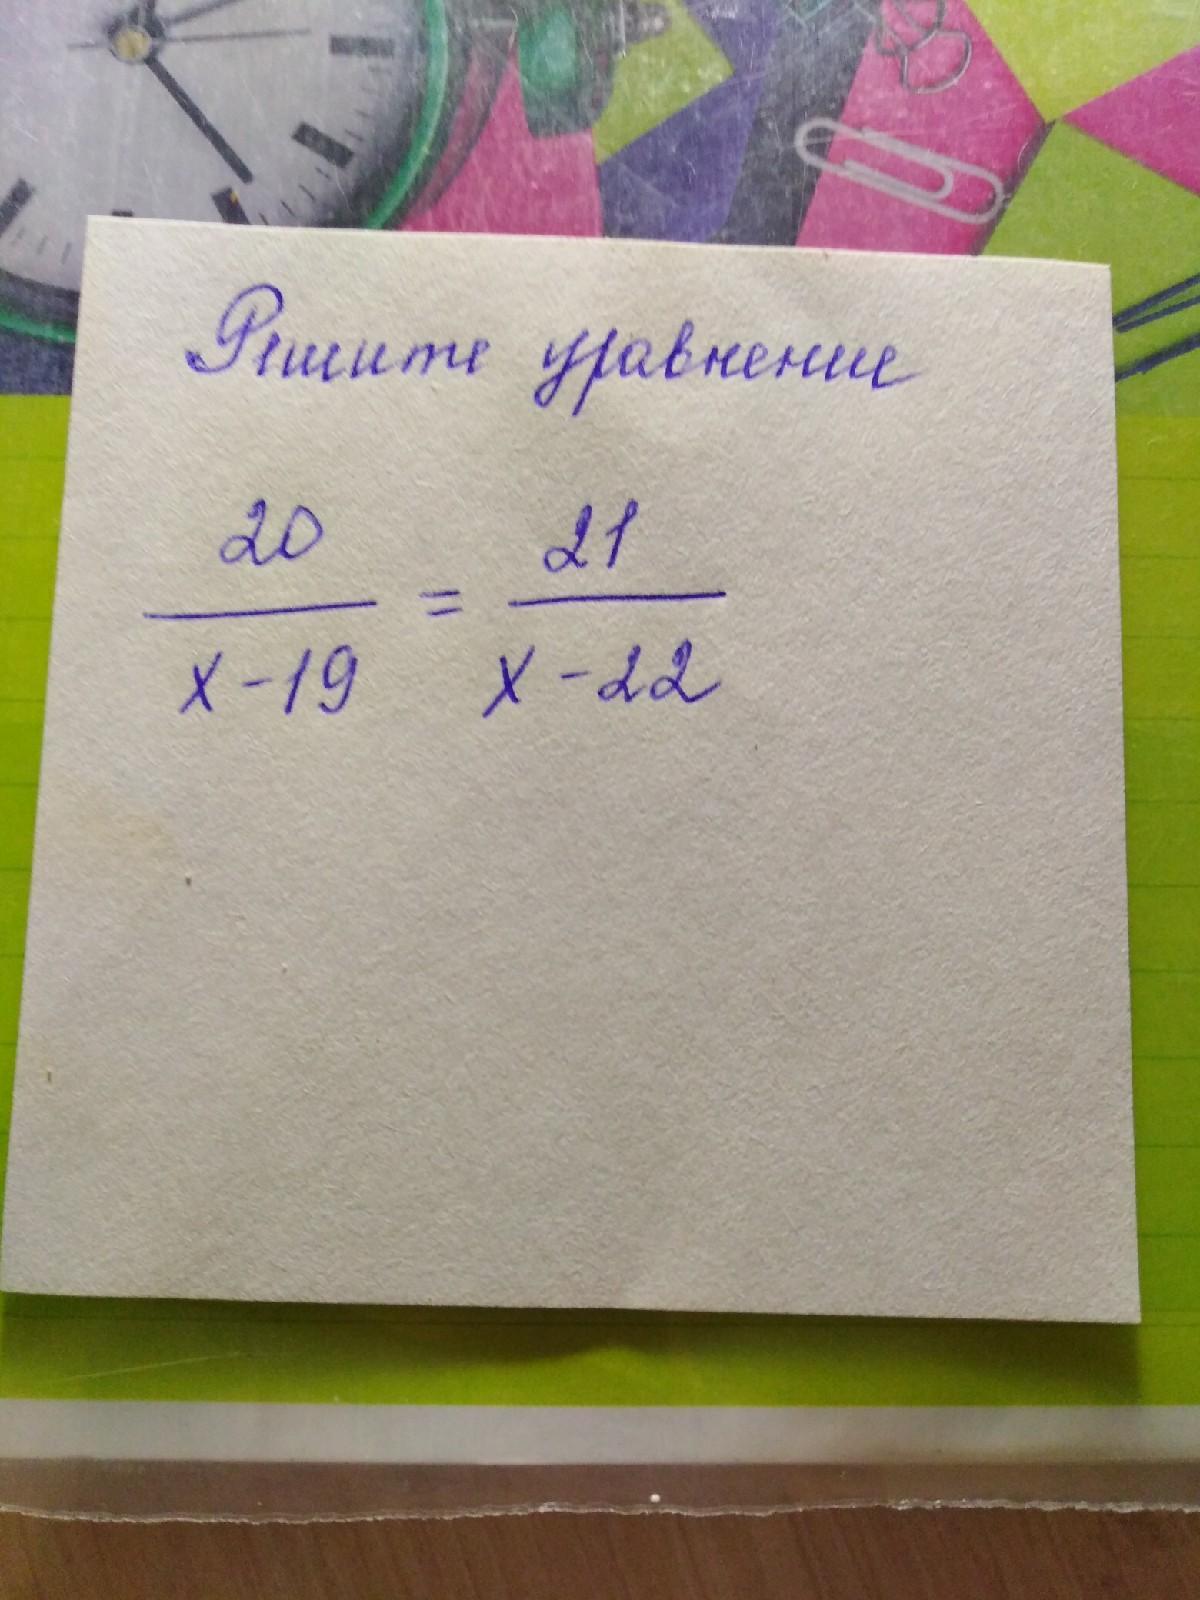 Решите уравнение
20 / x-19 = 21 / x-22